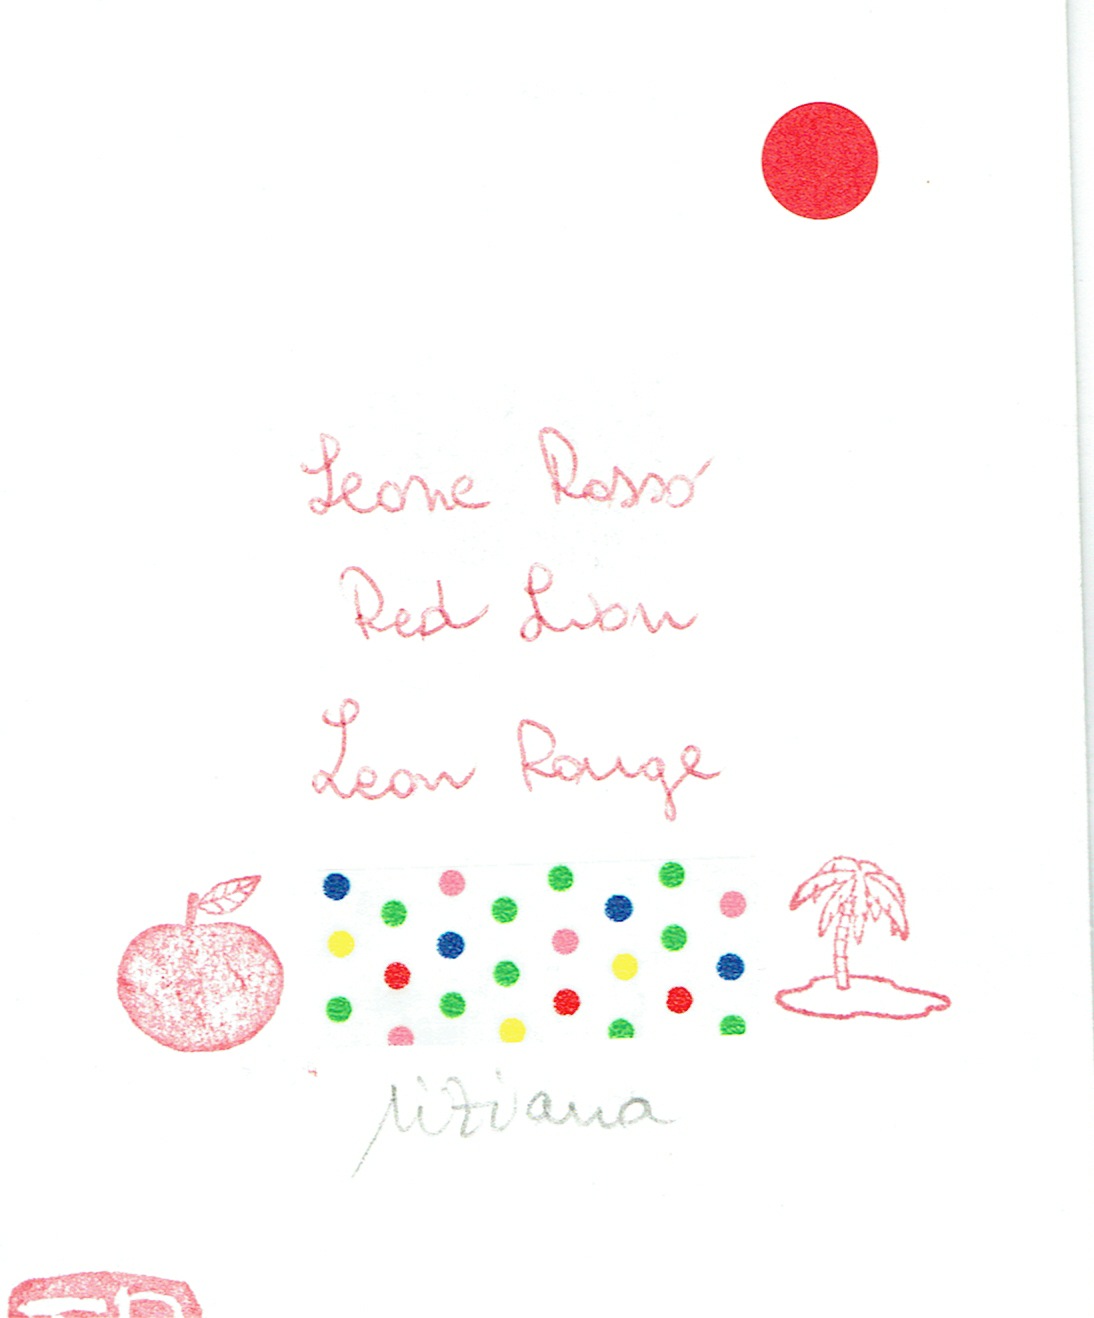 Leone Rosso
Red Lion
Leon Rouge
Tiziana